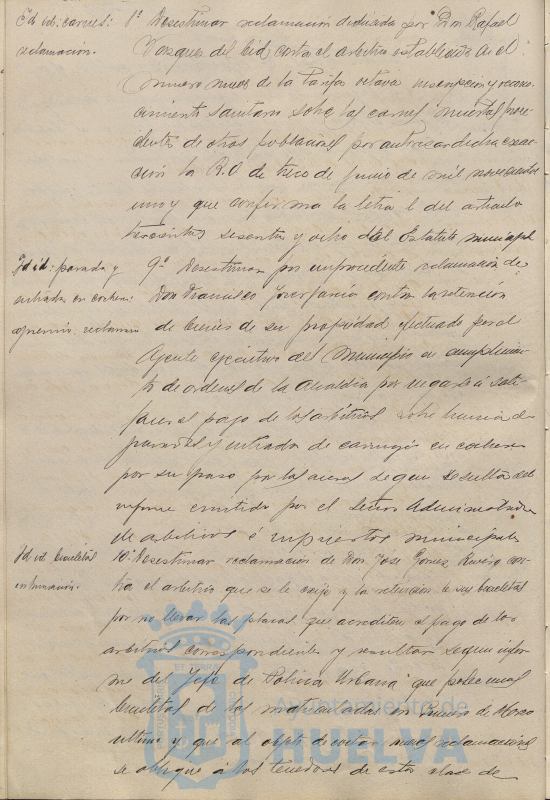 Id id: carnes:
reclamación.
8º Desestimar reclamación deducida por Don Rafael
Vazquez del Cid contra el arbitrio establecido en el
número nueve de la Tarifa octava inscripción y recono-
cimiento sanitario sobre las carnes muertas proce-
dentes de otras poblaciones por autorizar dicha exac-
ción la R.O de trece de Junio de mil novecientos
uno y que confirma la letra l del artículo
trescientos sesenta y ocho del Estatuto municipal
Id id: parada y
entradas en cocheras
apremio reclamación
9º Desestimar por improcedente reclamación de
Don Francisco José García contra la retención
de bienes de su propiedad efectuado por el
Agente ejecutivo del Municipio en cumplimien-
to de ordenes de la Alcaldía por negarse á satis-
facer el pago de los arbitrios sobre licencia de
paradas y entrada de carruajes en cocheras
por su paso por las aceras de que resulta del
informe emitido por el señor Administrador
de arbitrios é impuestos municipales
Id id bicicletas
10º Desestimar reclamación de Don José Gomez Rivero con-
tra el arbitrio que se le exije y la retención de sus bicicletas
por no llevar las placas que acrediten el pago de los
arbitrios correspondientes y resultar segun infor-
me del Jefe de Policía Urbana que posee unas
bicicletas de las matriculadas en de Marzo
ultimo y que al objeto de evitar nuevas reclamaciones
se obligue á los tenedores de esta clase de
Ayuntamiento de
HUELVA